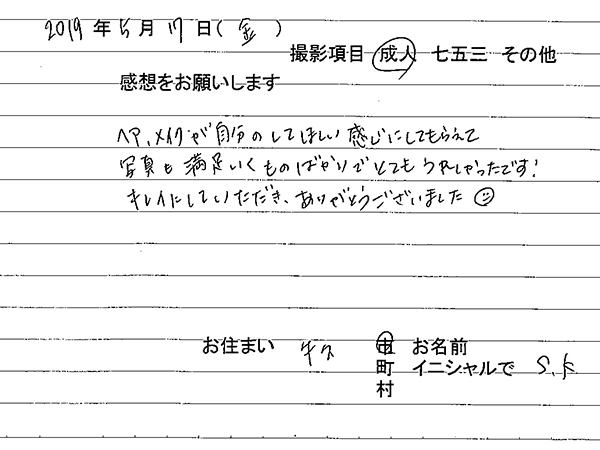 2019年5月17日(金)
撮影項目 成人 七五三 その他
感想をお願いします
ヘア、メイクが自分のしてほしい感じにしてもらえて
写真も満足いくものばかりでとてもうれしかったです!
キレイにしていただき、ありがとうございました
お住まい 牛久 市 お名前
町 イニシャルで S.K
村